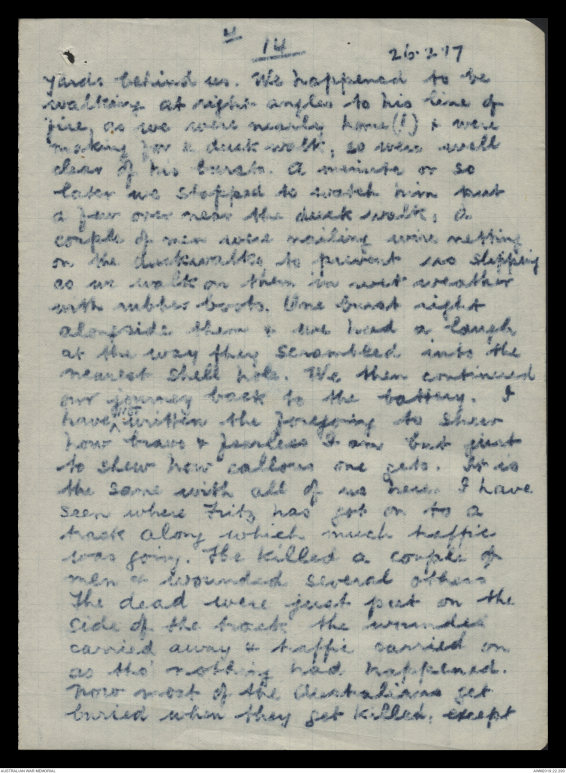 4
14
26.2.17
yards behind us. We happened to be
walking at right angles to his line of
fire, as we were nearly home (!) & were
making for a duck walk, so were well
clear of his bursts. A minute or so
later we stopped to watch him put
a few over near the duck walk; A
couple of men were nailing wire netting
on the duckwalks to prevent us slipping
as we walk on them in wet weather
with rubber boots. One burst right
alongside them & we had a laugh
at the way they scrambled into the
nearest shell hole. We then continued
our journey back to the battery. I
have not written the foregoing to shew
how brave & fearless I am but just
to shew how callous one gets. It is
the same with all of us here. I have
seen where Fritz has got on to a
track along which much traffic
was going. He killed a couple of
men & wounded several others
The dead were just put on the
side of the track the wounded
carried away & traffic carried on
as tho' nothing had happened.
Now most of the Australians get
buried when they get killed, except
AUSTRALIAN WAR MEMORIAL